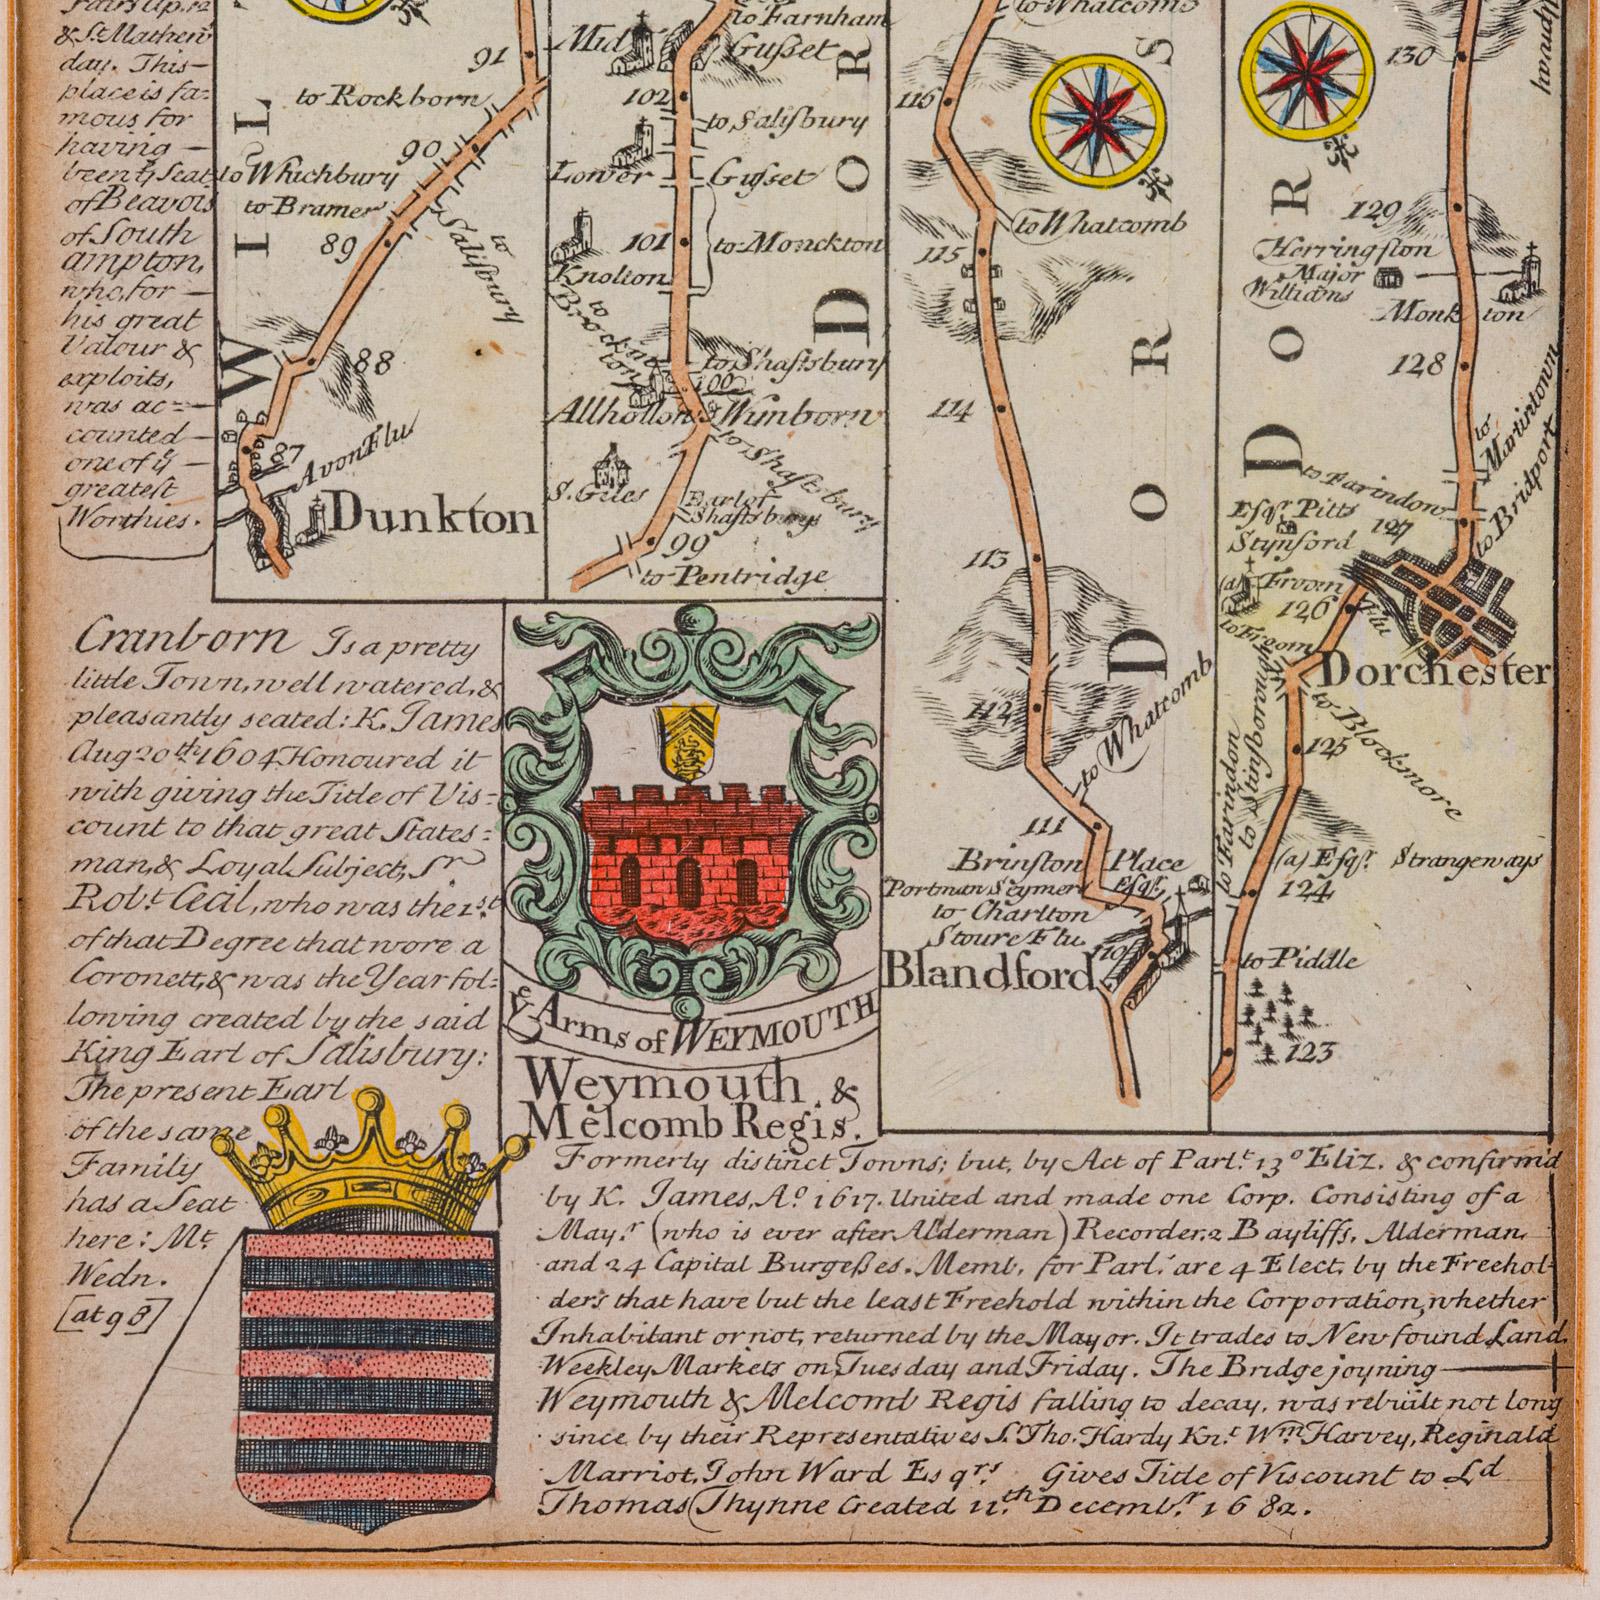 Fairs Ap. 12
& St. Mathew
day. This
place is fa=
mous for
having
been yͤ Seat
of Beavois
of South
ampton,
who, for
his great
Valour &
exploits,
was ac=
counted
one of yͤ
greatest
Worthies.
W I L
91
to Rockborn
90
to Whichbury
to Bramer
89
to Salisbury
88
87
Avon Flu
Dunkton
Mid Gusset
to Farnham
102
to Salisbury
Lower Gusset
101
to Monckton
Knolton
to Brockington
to Shaftsbury
100
Allhollon Wimborn
to Shaftsbury
S. Giles
Earl of
Shaftsbury
99
to Pentridge
D O R
to Whatcomb
116
to Whatcomb
115
114
113
112
to Whatcomb
111
Brinston Place
Portman Seymer Esqr.
to Charlton
Stoure Flu.
Blandford
D O R S
Upway
130
129
Herringston
Major
Williams
Monkton
128
to Martintown
to Bridport
to Farindon
Esqr. Pitts
127
Stynford
(a) Froom
Flu
126
to Froom
Dorchester
to Blockmore
125
to Slingsborough
to Farindon
(a) Esqr. Strangeways
124
to Piddle
123
D O R
Cranborn Is a pretty
little Town, well watered, &
pleasantly seated: K. James
Aug 20th 1604 Honoured it
with giving the Title of Vis=
count to that great States=
man, & Loyal Subject, Sr
Robt. Cecil, who was the 1st
of that Degree that wore a
Coronett, & was the Year fol=
lowing created by the said
King Earl of Salisbury:
The present Earl
of the same
Family
has a Seat
here: Mt.
Wedn.
[at 98]
yͤ Arms of WEYMOUTH
Weymouth &
Melcomb Regis.
Formerly distinct Towns; but, by Act of Parlt. 13º Eliz. & confirm'd
by K. James, Aº 1617. United and made one Corp. Consisting of a
Mayr. (who is ever after Alderman) Recorder. 2 Bayliffs, Alderman,
and 24 Capital Burgesses. Memb. for Parl. are 4 Elect. by the Freehol-
ders that have but the least Freehold within the Corporation, whether
Inhabitant or not, returned by the Mayor. It trades to Newfound Land.
Weekley Markets on Tuesday and Friday. The Bridge joyning
Weymouth & Melcomb Regis falling to decay, was rebuilt not long
since by their Representatives Sr. Tho. Hardy Knt. Wm Harvey, Reginald
Marriot, John Ward Esqrs Gives Title of Viscount to Ld
Thomas Thynne Created 11th Decembr. 1682.